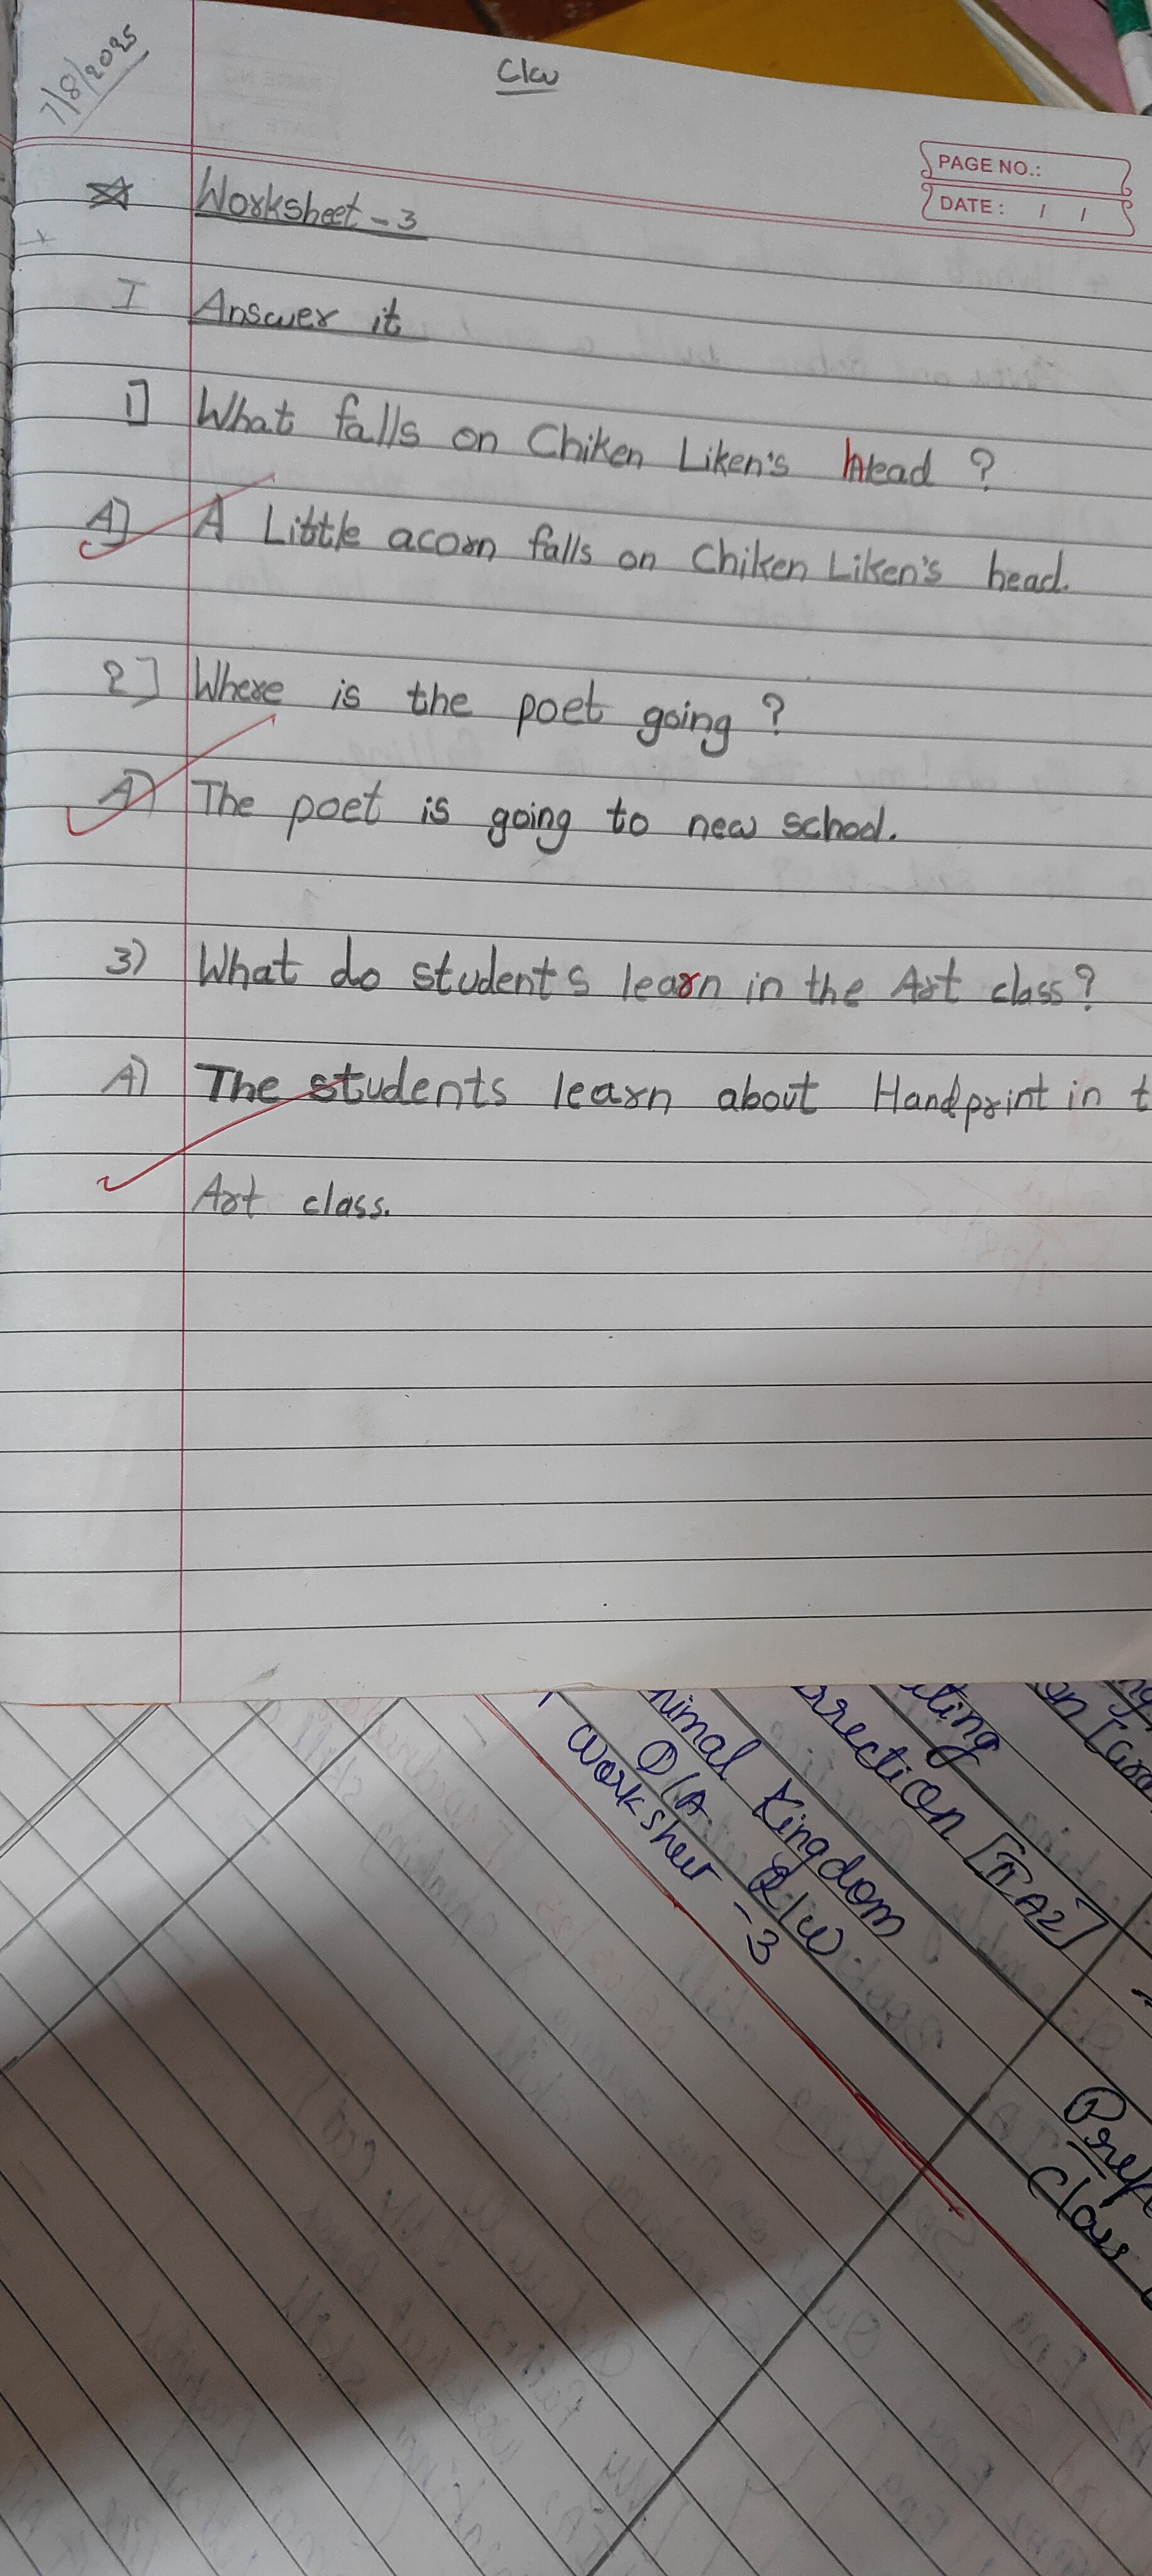 7/8/2025
C/w
PAGE NO.:
DATE: / /
Worksheet - 3
I Answer it
1] What falls on Chiken Liken's head ?
A] A Little acorn falls on Chiken Liken's head.
2] Where is the poet going ?
A) The poet is going to new school.
3) What do students learn in the Art class?
A) The students learn about Handprint in t
Art class.
ting
rrection [II A2]
nimal Kingdom
Q/A R/w
Worksheet - 3
Class